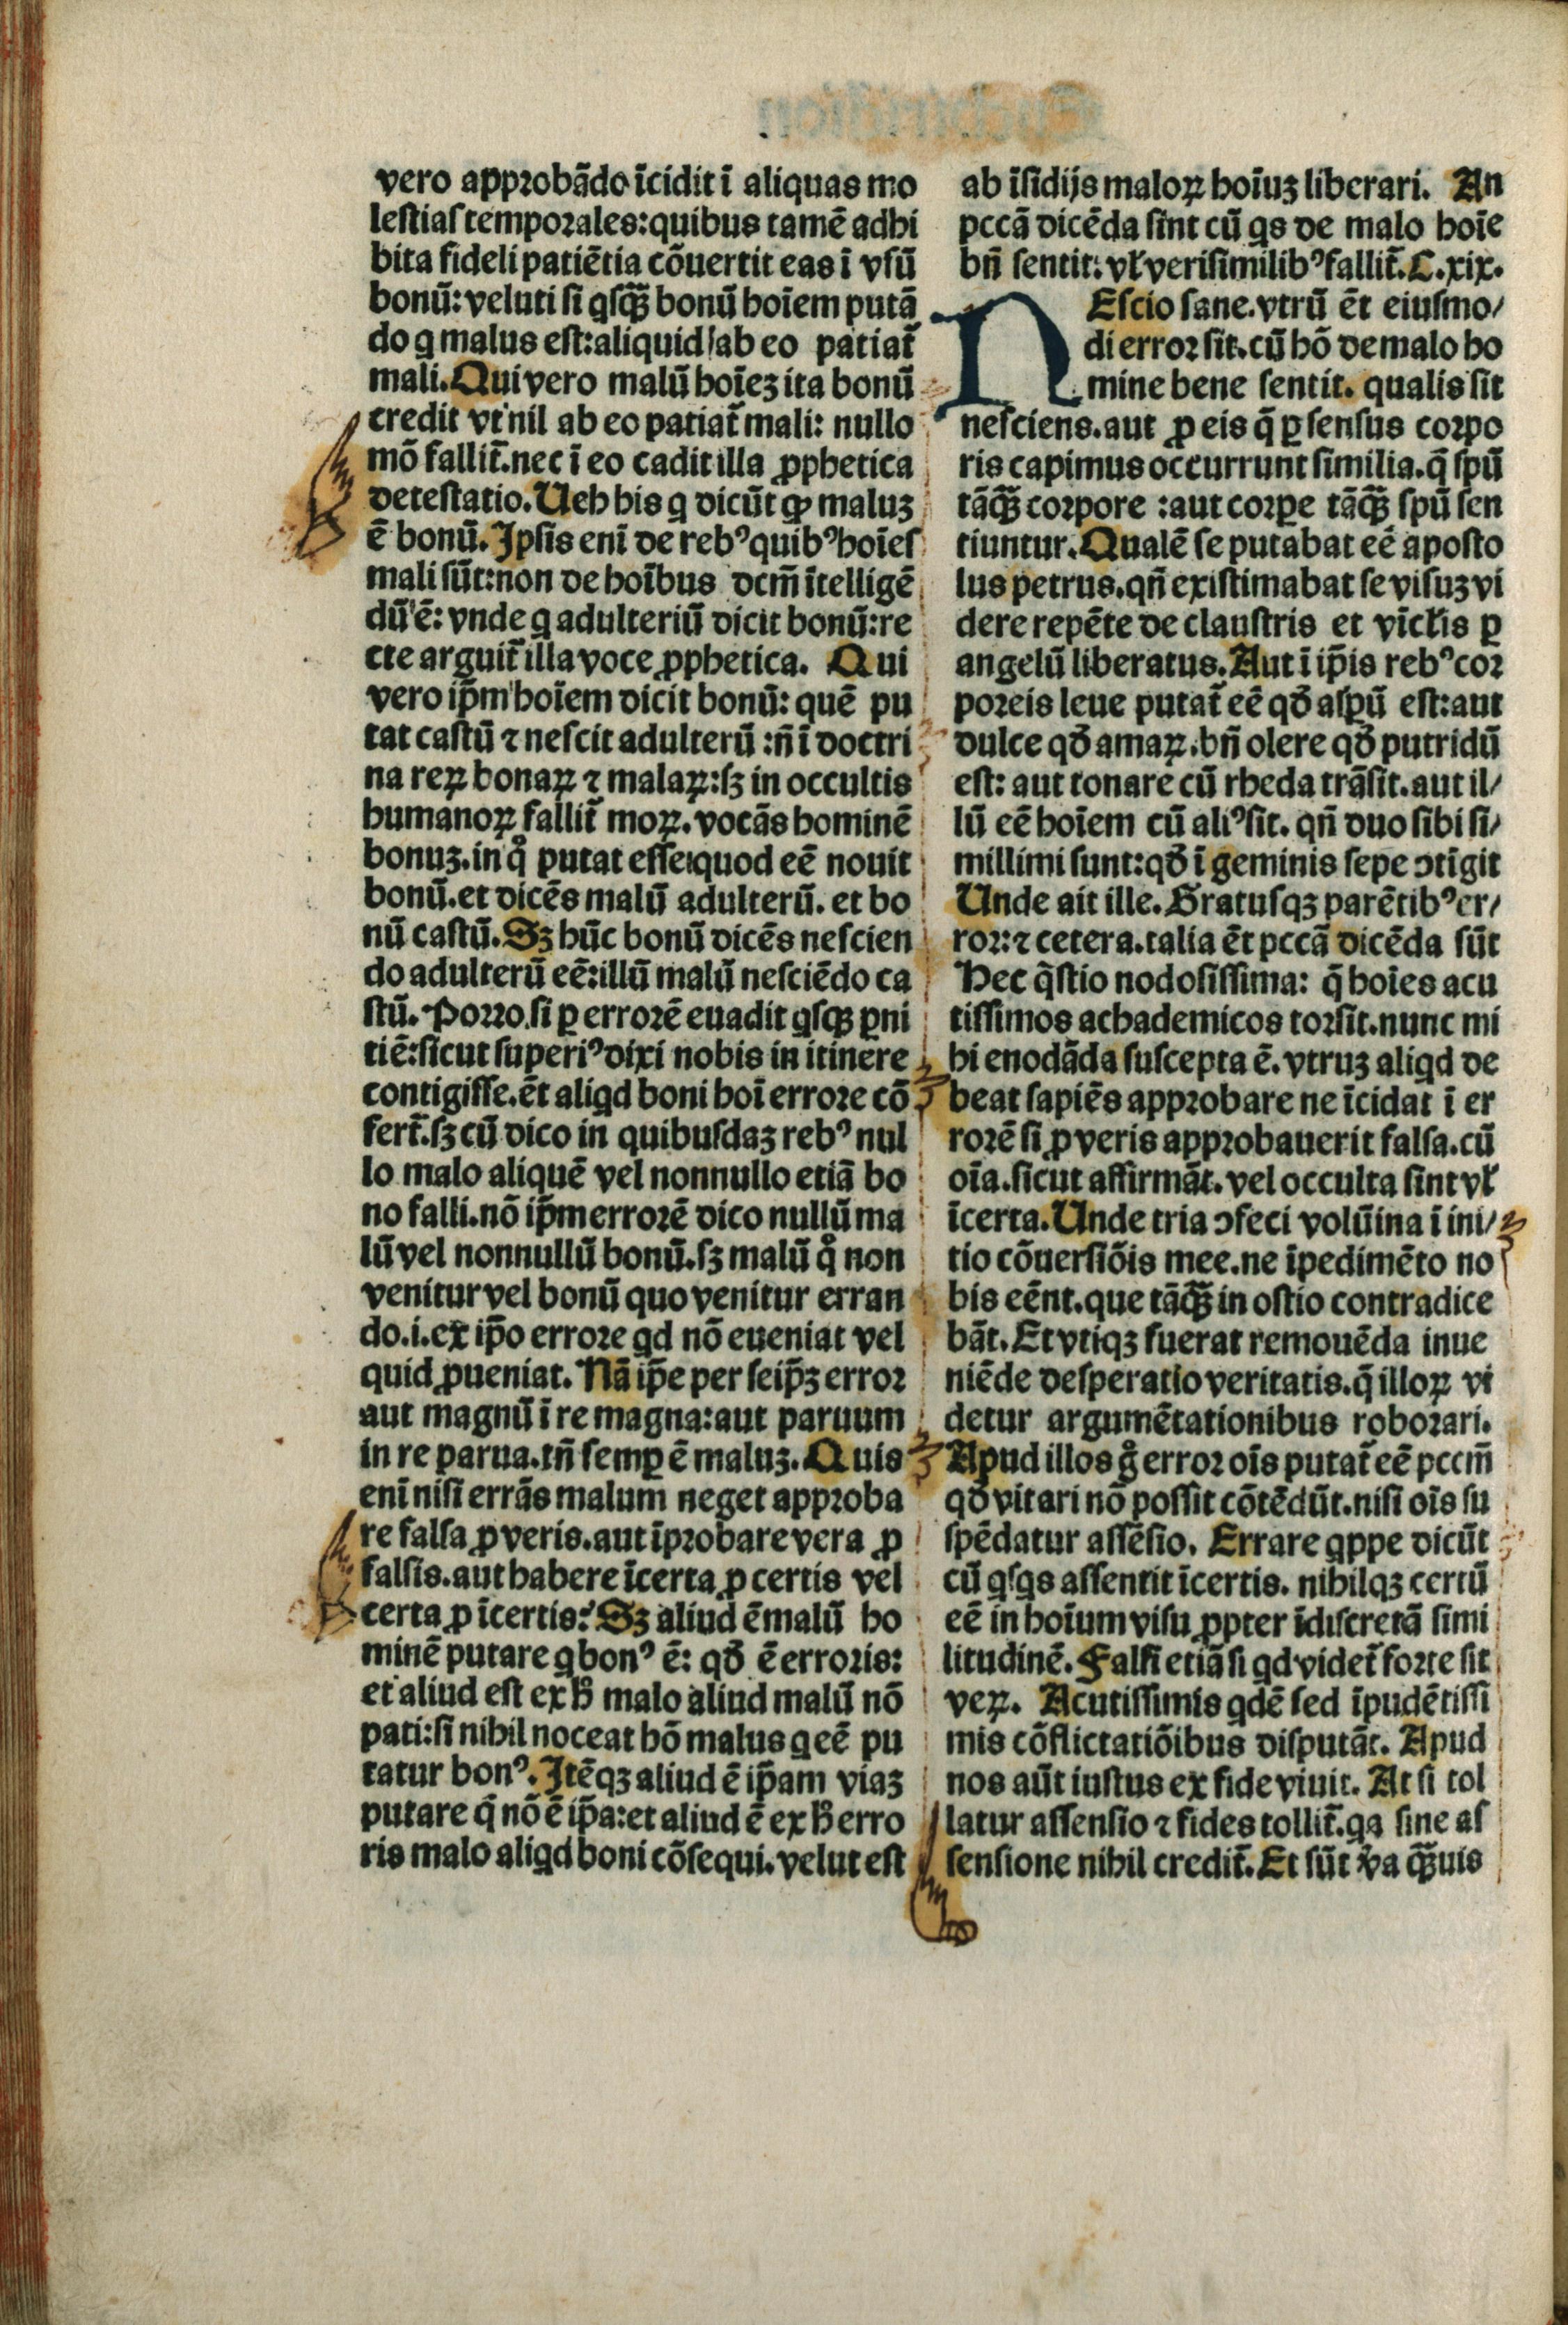 vero approbãdo ĩcidit ĩ aliquas mo
lestias temporales:quibus tamẽ adhi
bita fideli patiẽtia cõuertit eas ĩ vsũ
bonũ:veluti si qsq̃ꝫ bonũ hoĩem putã
do q malus est:aliquid ab eo patiat᷑
mali.Qui vero malũ hoĩeꝫ ita bonũ
credit vt nil ab eo patiat᷑ mali: nullo
mõ fallit᷑.nec ĩ eo cadit illa ꝓphetica
detestatio.Ueh his q dicũt ꝙ maluꝫ
ẽ bonũ.Ipsis enĩ de rebꝰ quibꝰ hoĩes
mali sũt:non de hoĩbus dcm̃ ĩtelligẽ
dũ ẽ: vnde q adulteriũ dicit bonũ:re
cte arguit᷑ illa voce ꝓphetica. Qui
vero ip̃m hoĩem dicit bonũ: quẽ pu
tat castũ ⁊ nescit adulterũ :ñ ĩ doctri
na reꝝ bonaꝝ ⁊ malaꝝ:sꝫ in occultis
humanoꝝ fallit᷑ moꝝ.vocãs hominẽ
bonuꝫ.in qͦ putat esse quod eẽ nouit
bonũ.et dicẽs malũ adulterũ. et bo
nũ castũ.Sꝫ hũc bonũ dicẽs nescien
do adulterũ eẽ:illũ malũ nesciẽdo ca
stũ. Porro si ꝑ errorẽ euadit qsqꝫ ꝑni
tiẽ:sicut superiꝰ dixi nobis in itinere
contigisse.ẽt aliqd boni hoĩ errore cõ
fert᷑.sꝫ cũ dico in quibusdaꝫ rebꝰ nul
lo malo aliquẽ vel nonnullo etiã bo
no falli.nõ ip̃m errorẽ dico nullũ ma
lũ vel nonnullũ bonũ.sꝫ malũ qͦ non
venitur vel bonũ quo venitur erran
do.i.ex ip̃o errore qd nõ eueniat vel
quid ꝓueniat. Nã ip̃e per seip̃ꝫ error
aut magnũ ĩ re magna:aut paruum
in re parua.tñ semꝑ ẽ maluꝫ. Quis
enĩ nisi errãs malum neget approba
re falsa ꝓ veris.aut ĩprobare vera ꝓ
falsis.aut habere ĩcerta ꝓ certis vel
certa ꝓ ĩcertis? Sꝫ aliud ẽ malũ ho
minẽ putare q bonꝰ ẽ: qð ẽ erroris:
et aliud est ex h̃ malo aliud malũ nõ
pati:si nihil noceat hõ malus q eẽ pu
tatur bonꝰ.Itẽqꝫ aliud ẽ ip̃am viaꝫ
putare q̃ nõ ẽ ip̃a:et aliud ẽ ex h̃ erro
ris malo aliqd boni cõsequi.velut est
ab ĩsidijs maloꝝ hoĩuꝫ liberari. An
pccã dicẽda sint cũ qs de malo hoĩe
bñ sentit: vł verisimilibꝰ fallit᷑.C.xix.
NEscio sane.vtrũ ẽt eiusmo/
di error sit.cũ hõ de malo ho
mine bene sentit. qualis sit
nesciens.aut ꝓ eis q̃ ꝑ sensus corpo
ris capimus occurrunt similia.q̃ spũ
tãq̃ꝫ corpore :aut corꝑe tãq̃ꝫ spũ sen
tiuntur.Qualẽ se putabat eẽ aposto
lus petrus.qñ existimabat se visuꝫ vi
dere repẽte de claustris et vĩcłis ꝑ
angelũ liberatus.Aut ĩ ip̃is rebꝰ cor
poreis leue putat᷑ eẽ qð aspũ est:aut
dulce qð amaꝝ.bñ olere qð putridũ
est: aut tonare cũ rheda trãsit.aut il/
lũ eẽ hoĩem cũ aliꝰ sit. qñ duo sibi si/
millimi sunt:qð ĩ geminis sepe ↄtĩgit
Unde ait ille. Gratusqꝫ parẽtibꝰ er/
ror:⁊ cetera.talia ẽt pccã dicẽda sũt
Hec q̃stio nodosissima: q̃ hoĩes acu
tissimos achademicos torsit.nunc mi
hi enodãda suscepta ẽ. vtruꝫ aliqd de
beat sapiẽs approbare ne ĩcidat ĩ er
rorẽ si ꝓ veris approbauerit falsa.cũ
oĩa.sicut affirmãt.vel occulta sint vł
ĩcerta.Unde tria ↄfeci volũina ĩ ini/
tio cõuersiõis mee.ne ĩpedimẽto no
bis eẽnt.que tãq̃ꝫ in ostio contradice
bãt.Et vtiqꝫ fuerat remouẽda inue
niẽde desperatio veritatis.q̃ illoꝝ vi
detur argumẽtationibus roborari.
Apud illos gͦ error oĩs putat᷑ eẽ pccm̃
qð vitari nõ possit cõtẽdũt.nisi oĩs su
spẽdatur assẽsio. Errare qppe dicũt
cũ qsqs assentit ĩcertis. nihilqꝫ certũ
eẽ in hoĩum visu ꝓpter ĩdiscretã simi
litudinẽ. Falsi etiã si qd videt᷑ forte sit
veꝝ. Acutissimis qdẽ sed ĩpudẽtissi
mis cõflictatiõibus disputãt. Apud
nos aũt iustus ex fide viuit. At si tol
latur assensio ⁊ fides tollit᷑.qa sine as
sensione nihil credit᷑.Et sũt v̾a q̃ꝫuis